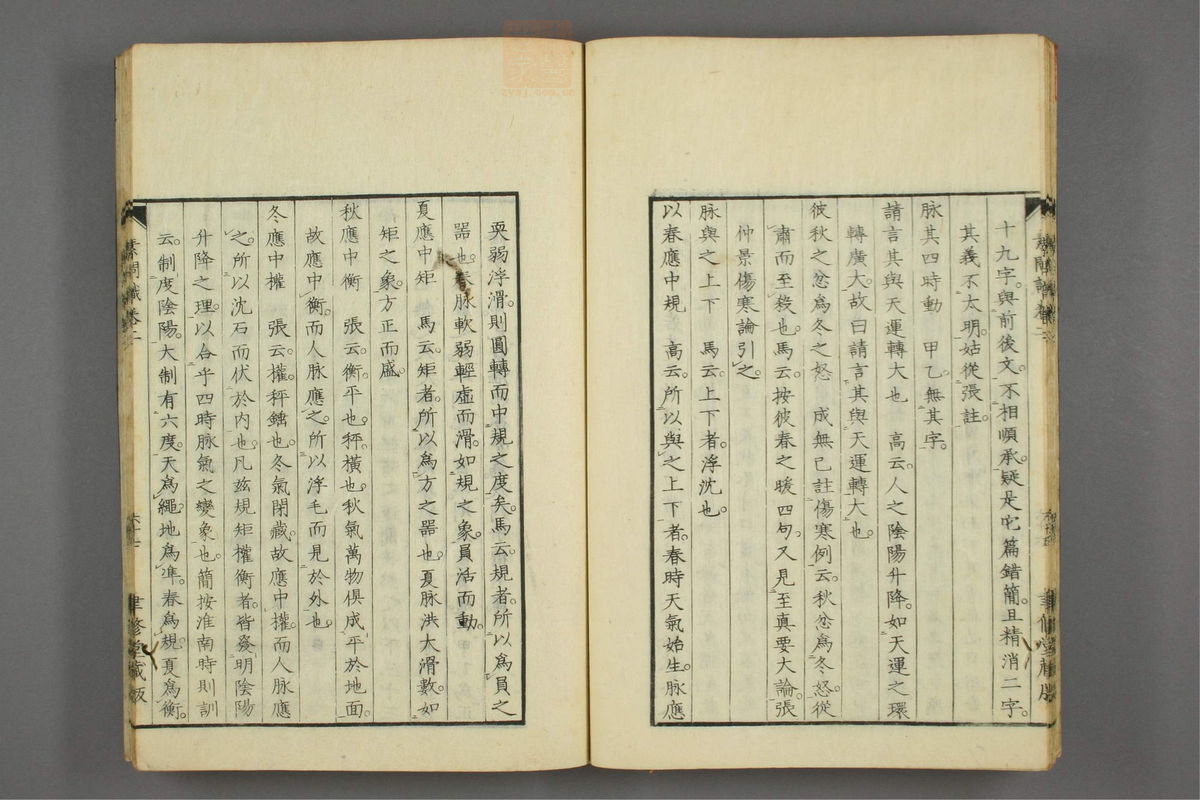 十九字。與前後文。不相順承。疑是它篇錯簡。且精消二字。
其義不太明。姑從張註。
脉其四時動　甲乙。無其字。
請言其與天運轉大也　高云。人之陰陽升降。如天運之環
轉廣大。故曰請言其與天運轉大也。
彼秋之忿爲冬之怒　成無己註傷寒例云。秋忿爲冬怒。從
肅而至殺也。馬云。按彼春之暖四句。又見至眞要大論。張
仲景傷寒論引之。
脉與之上下　馬云。上下者。浮沈也。
以春應中規　高云。所以與之上下者。春時天氣始生。脉應
耎弱浮滑。則圓轉而中規之度矣。馬云。規者。所以爲員之
器也。春脉軟弱輕虛而滑。如規之象。員活而動。
夏應中矩　馬云。矩者。所以爲方之器也。夏脉洪大滑數。如
矩之象。方正而盛。
秋應中衡　張云。衡平也。秤橫也。秋氣萬物俱成。平於地面。
故應中衡。而人脉應之。所以浮毛而見於外也。
冬應中權　張云。權。秤錘也。冬氣閉藏。故應中權。而人脉應
之。所以沈石而伏於內也。凡茲規矩權衡者。皆發明陰陽
升降之理。以合乎四時脉氣之變象也。簡按淮南時則訓
云。制度陰陽。大制有六度。天爲繩。地爲準。春爲規。夏爲衡。
素問識卷二
聿修堂藏版